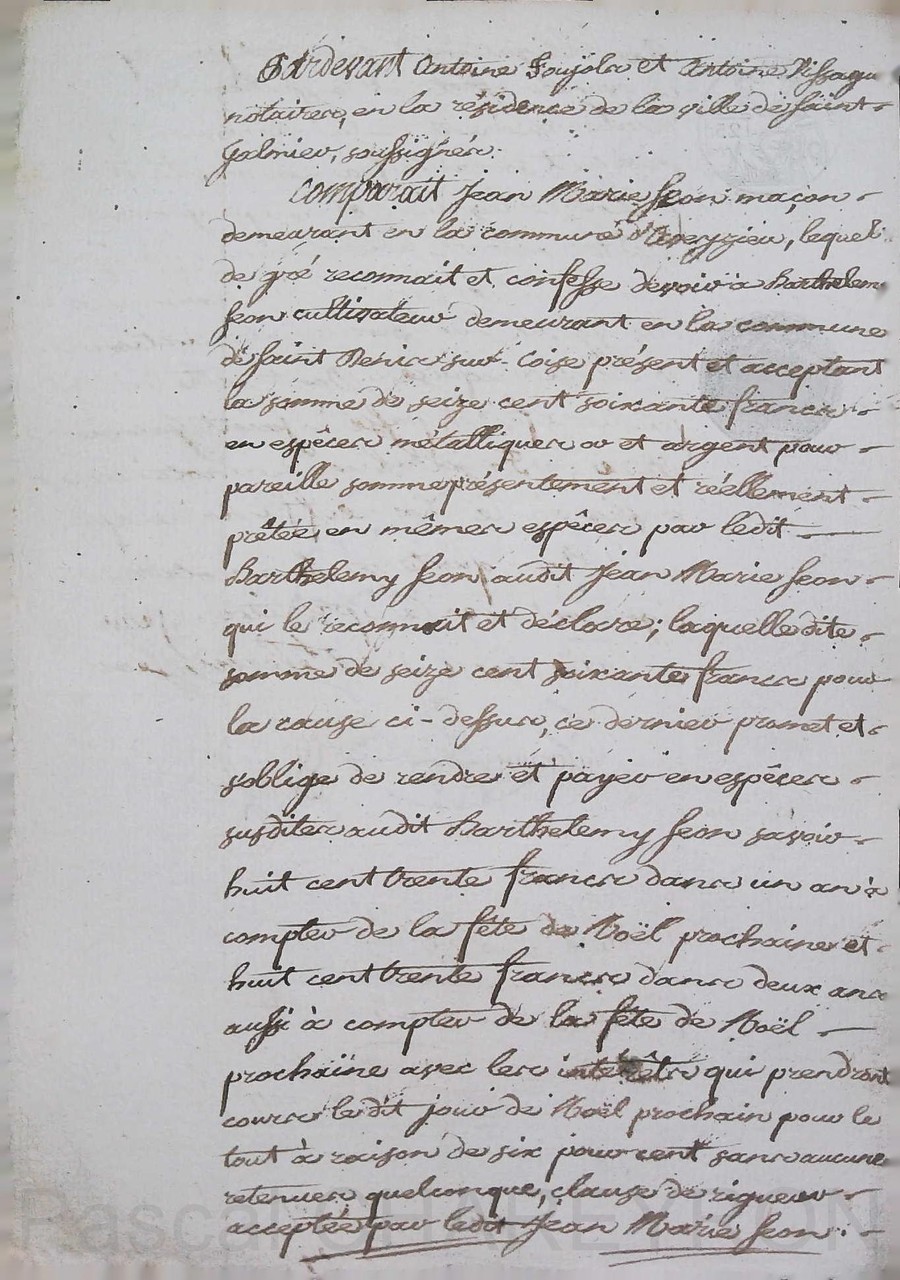 Pardevant Antoine Goujola et Antoine Vissagu
notaires, en la résidence de la ville de Saint-
Galmier, soussignés.
Comparait Jean Marie Jeon maçon
demeurant en la commune d'Aveyzieu, lequel
de gré reconnait et confesse devoir à Barthelem
Jeon cultivateur demeurant en la commune
de Saint Denis sur-Coise présent et acceptant
la somme de seize cent soixante francs
en espèces métalliques or et argent pour
pareille somme présentement et réellement
prêtée, en mêmes espèces par ledit
Barthelemy Jeon audit Jean Marie Jeon
qui le reconnait et déclare; laquelle dite
somme de seize cent soixante francs pour
la cause ci-dessus, ce dernier promet et
s'oblige de rendre et payer en espèces
susdites audit Barthelemy Jeon savoir
huit cent trente francs dans un an à
compter de la fête de Noël prochaine et
huit cent trente francs dans deux ans
aussi à compter de la fête de Noël
prochaine avec les intérêts qui prendront
cours le dit jour de Noël prochain pour le
tout à raison de six pour cent sans aucune
retenues quelconque, clause de rigueur
acceptée par ledit Jean Marie Jeon.